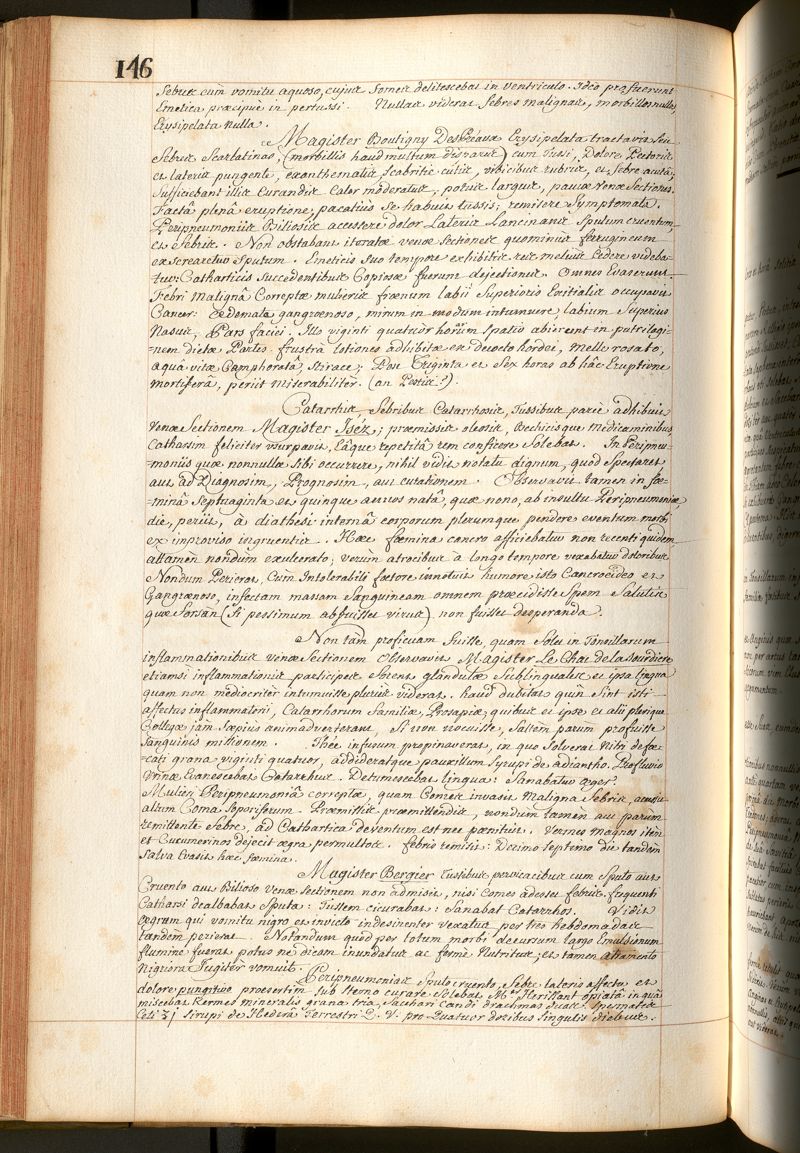 146
Febris cum vomitu aquoso, cujus fomes delitescebat in ventriculo. Ideo profuerunt
Emetica præcipuè in pertussi. Nullas viderat febres malignas, morbillos nullos,
Erysipelata nulla.
Magister Boutigny Despréaux Erysipelata tractavit seu
Febres Scarlatinas, (morbillis haud multum dispares) cum Tussi, Dolore Pectoris
et lateris pungente, exanthematis, scabritie cutis, vibicibus rubris, et Febre acutâ;
Sufficiebant illis Curandis Calor moderatus, potus largus, paucæ Venæ Sectiones.
Factâ plenâ eruptione, pacatius se habuit tussis; remisere Symptomata.
Peripneumoniis Biliosis accessere dolor Lateris Lancinans Sputum cruentum
et Febris. Non obstabant iteratæ venæ sectiones quominus ferrugineum
exscrearetur Sputum. Emeticis suo tempore exhibitis res melius Cedere videba-
tur: Catharticis Succedentibus Copiosæ fuerunt dejectiones. Omnes Evaserunt
Febri Malignâ Correptæ mulieris frænum labii Superioris Exitialis occupavit
Cancer: Œdemata gangrænoso, mirum in modum intumuere, labium Superius
Nasus, Pars faciei. Illo viginti quatuor horum spatio abierent in putrilagi-
=nem dictæ Partes. frustrà lotiones adhibitæ ex decocto hordei, melle rosato,
aquâ vitæ Camphoratâ, Stirace; Post Triginta et Sex horas ab hâc Eruptione
mortiferâ, periit miserabiliter. (an Pestis?).
Catarrhis, Febribus Catarrhosis, Tussibus parcè adhibuit
Venæ Sectionem Magister Iséz; præmissis oleosis, bechicisque medicaminibus
Catharsim feliciter usurpavit, Eâque repetitâ rem conficere Solebat. In Peripneu-
=moniis quæ nonnullæ Sibi occurrere, nihil vidit notatu dignum, quod Spectaret
aut ad Diagnosim, Prognosim, aut curationem. Observavit tamen in fœ-
=minâ Septuaginta et quinque annos natâ, quæ nono, ab insultu Peripneumoniæ,
die, periit, à diathesi internâ corporum plerumque pendere eventum morbi
ex improviso ingruentis. Hæc fœmina cancro afficiebatur non recenti quidem
attamen nondum exulcerato; verùm atrocibus à longo tempore vexabatur doloribus
Nondum Perierat, Cum Intolerabili fœtore innotuit humore isto Cancroideo et
Gangrænoso, infectam massam Sanguineam omnem præcidisse Spem Salutis
quæ Forsàn (Si pessimum abfuisset virus) non fuisset desperanda.
Non tàm proficuam fuisse, quam Solet in Tonsillarum
inflammationibus venæ Sectionem Observavit Magister Le Chat de la sourdiere
etiamsi inflammationis participes essent glandulæ Sublinguales et ipsa lingua
quam non mediocriter intumuisse pluries viderat. haud dubitat quin Sint isti
affectus inflammatorii, Catarrhorum Familiæ, Prosapiæ, quibus et ipse et alii plerique
Collegæ jàm Sæpius animadverterant, Si non nocuisse, Saltem parùm profuisse
Sanguinis missionem. Thee infusum propinaverat, in quo Solverat Nitri defæ-
cati grana viginti quatuor, addideratque pauxillum Syrupi de adiantho. Profluvio
Urinæ Evanescebat Catarrhus. Detumescebat lingua: Sanabatur æger.
Mulieri Peripneumoniâ correptæ, quam Comes invasit Maligna Febris, accessit
altum Coma Soporiferum. Præmissis præmittendis, nondum tamen aut parum
remittente Febre, ad Cathartica deventum est nec pœnituit. Vermes magnos item
et Cucumerinos dejecit ægra permultos. febris remisit: Decimo Septimo die tandem
Salva Evasit hæc fœmina.
Magister Bergier Tussibus pervicacibus cum Sputo aut
Cruento aut Bilioso Venæ Sectionem non admisit, nisi Comes adesset febris. frequenti
Catharsi dealbabat Sputa: Tussem cicurabat: Sanabat Catarrhos. Vidit
ægrum qui vomitu nigro et invicto indesinenter vexatus per tres hebdomadas
tandem perierat. Notandum quòd per totum morbi decursum Largo Emulsionum
flumine fuerat potus ne dicam inundatus ac fermè Nutritus; et tamen atramento
Nigriora Jugiter vomuit.
Peripneumonias Sputo cruento, Febre lateris affectu et
dolore pungitivo præsertim sub sterno curare Solebat Mr. Herissant opiatâ in quâ
miscebat Kermes mineralis grana tria, Sacchari Candi drachmas duas: Spermatis
Ceti ʒj Sirupi de Hederâ Terrestri Q. V. pro Quatuor dozibus Singulis diebus.